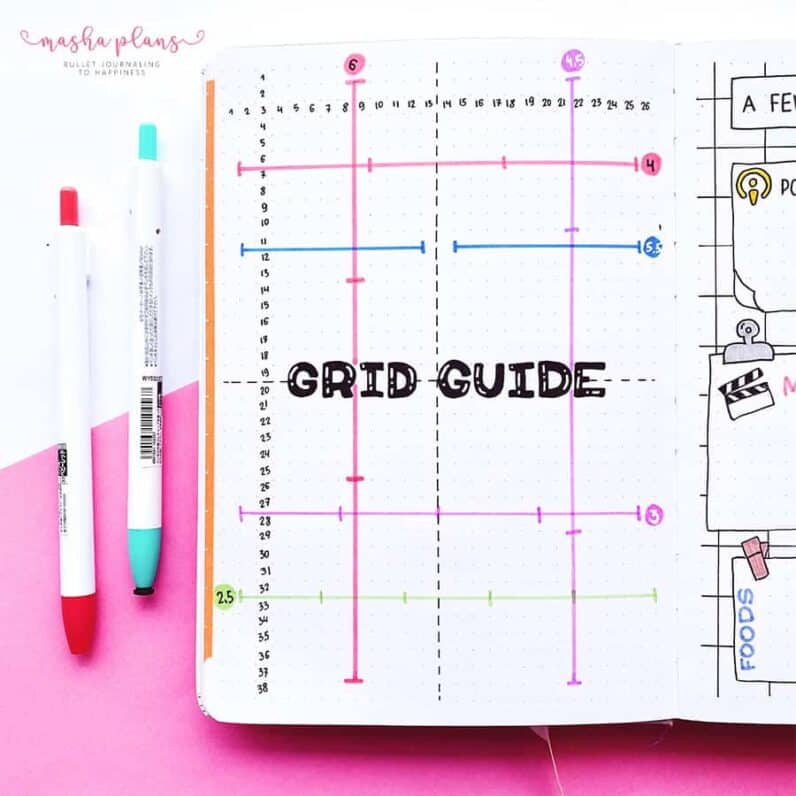 masha plans
BULLET JOURNALING
TO HAPPINESS
6
4.5
1
2
1 2 3 4 5 6 7 8 9 10 11 12 13 14 15 16 17 18 19 20 21 22 23 24 25 26
4
5
6
4
7
8
9
10
11
5.5
12
13
14
15
16
17
18
19
GRID GUIDE
20
21
22
23
24
25
26
27
3
28
29
30
31
32
2.5
33
34
35
36
37
38
A FE
PO
M
FOODS